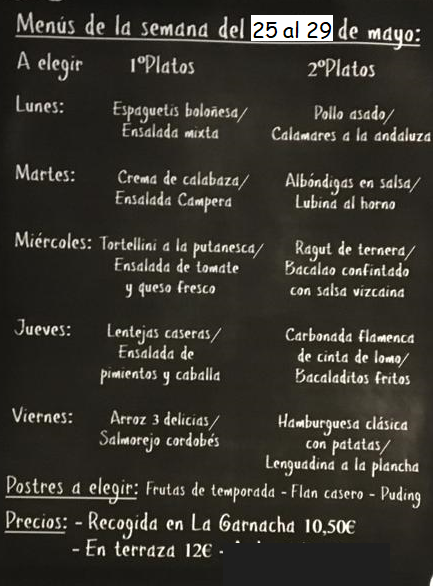 Menús de la semana del 25 al 29 de mayo:
A elegir 1ºPlatos 2ºPlatos
Lunes: Espaguetis boloñesa/ Pollo asado/
Ensalada mixta Calamares a la andaluza
Martes: Crema de calabaza/ Albóndigas en salsa/
Ensalada Campera Lubina al horno
Miércoles: Tortellini a la putanesca/ Ragut de ternera/
Ensalada de tomate Bacalao confintado
y queso fresco con salsa vizcaina
Jueves: Lentejas caseras/ Carbonada flamenca
Ensalada de de cinta de lomo/
pimientos y caballa Bacaladitos fritos
Viernes: Arroz 3 delicias/ Hamburguesa clásica
Salmorejo cordobés con patatas/
Lenguadina a la plancha
Postres a elegir: Frutas de temporada - Flan casero - Puding
Precios: - Recogida en La Garnacha 10,50€
- En terraza 12€ -